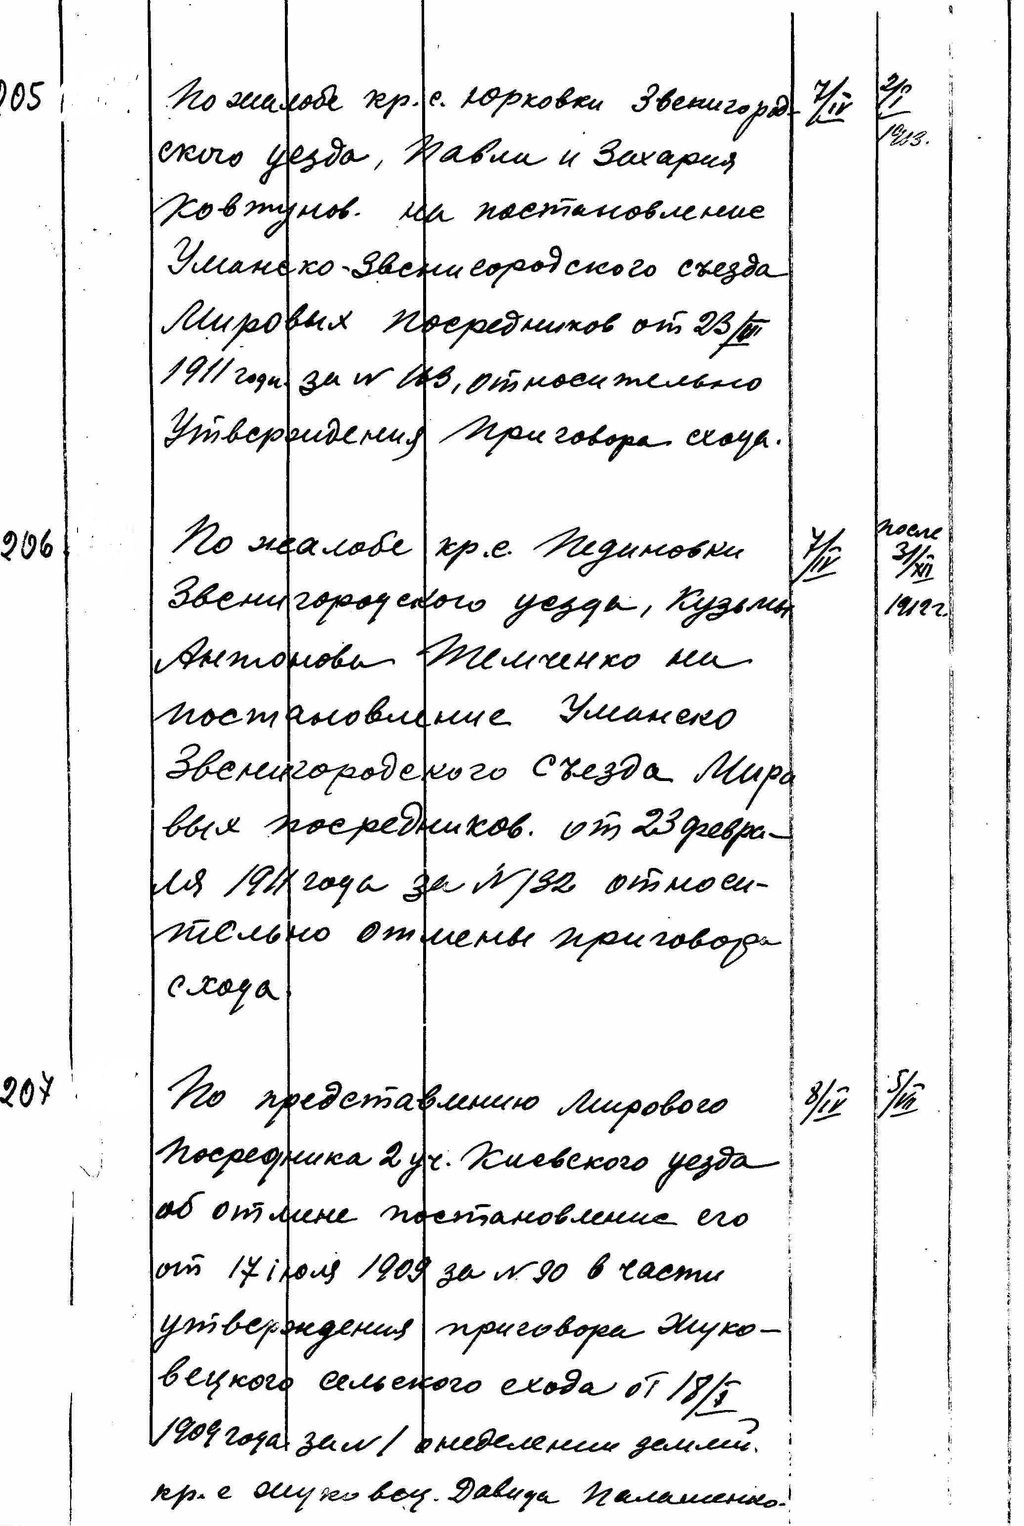 205 По жалобе кр. с. Юрковки Звенигород- 7/IV 2/I
ского уезда, Павла и Захария 1913.
Ковтунов. на постановление
Уманско-Звенигородского съезда
Мировых посредников от 23/III
1911 года за N 163, относительно
Утверждения Приговора схода.
206 По жалобе кр. с. Пединовки 7/IV после 31/XII
Звенигородского уезда, Кузьмы 1912 г.
Антонова Темченко на
постановление Уманско
Звенигородского Съезда Миро
вых посредников. от 23 февра-
ля 1911 года за N 132 относи-
тельно отмены приговора
схода.
207 По представлению Мирового 8/IV 5/VII
Посредника 2 уч. Киевского уезда
об отмене постановление его
от 17 июля 1909 за N 90 в части
утверждения приговора Жуко-
вецкого сельского схода от 18/V
1909 года за N 1 о наделении землей
кр. с Жуковец. Давида Палашенко-